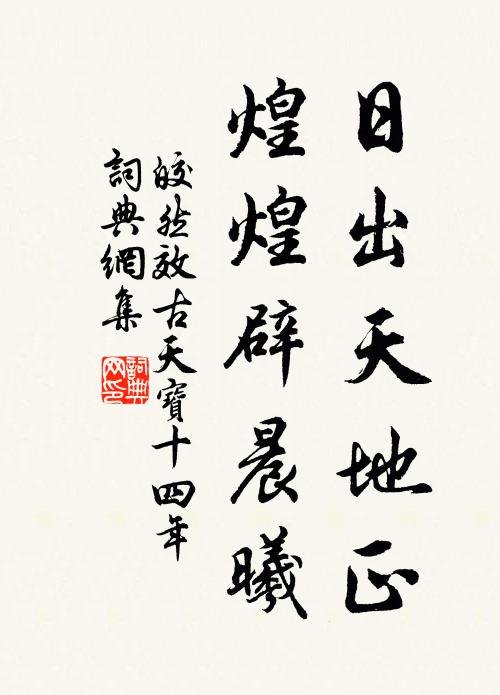 日出天地正
煌煌辟晨曦
皎然效古天寶十四年
詞典網集
詞典
网印